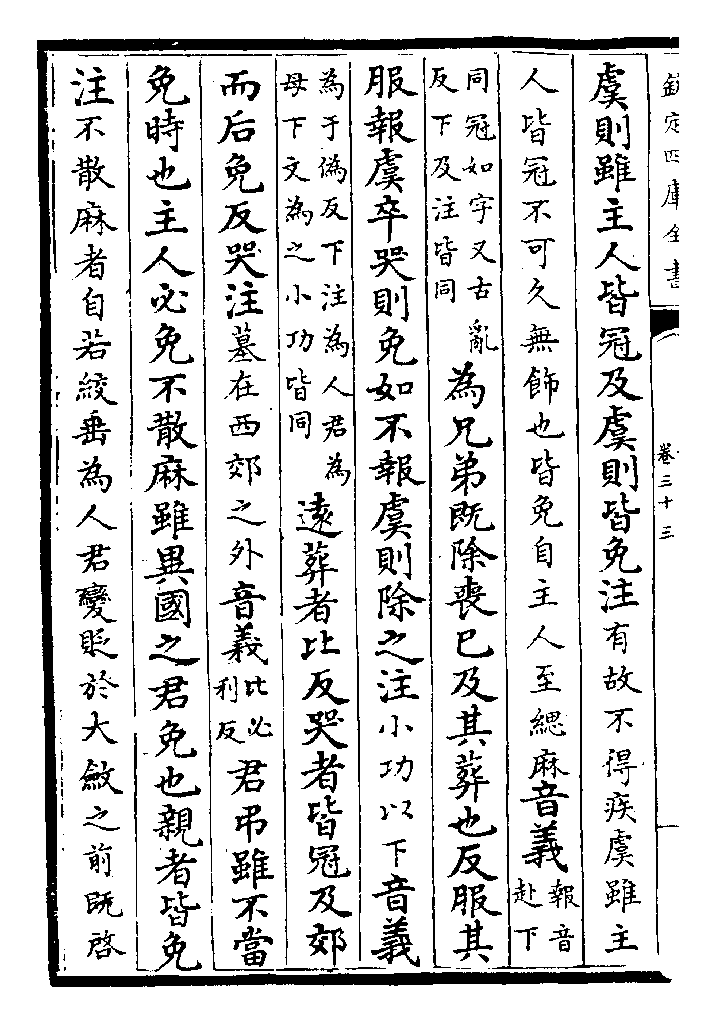 欽定四庫全書
卷三十三
虞則雖主人皆冠及虞則皆免注有故不得疾虞雖主
人皆冠不可久無飾也皆免自主人至緦麻音義報音赴下
同冠如字又古亂反下及注皆同為兄弟既除喪已及其葬也反服其
服報虞卒哭則免如不報虞則除之注小功以下音義
為于偽反下注為人君為母下文為之小功皆同遠葬者比反哭者皆冠及郊
而后免反哭注墓在西郊之外音義比必利反君弔雖不當
免時也主人必免不散麻雖異國之君免也親者皆免
注不散麻者自若絞垂為人君變貶於大斂之前既啓